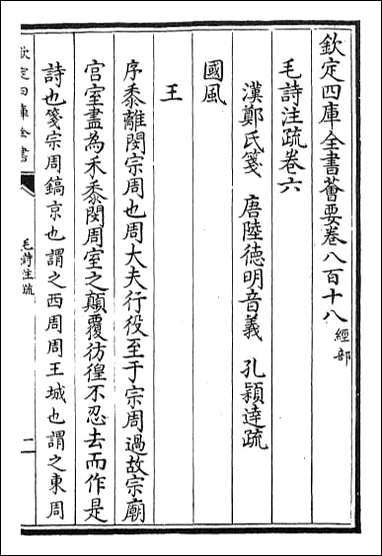 欽定四庫全書薈要卷八百十八 經部
毛詩注疏卷六
漢鄭氏箋 唐陸德明音義 孔穎達疏
國風
王
序黍離閔宗周也周大夫行役至于宗周過故宗廟
宫室盡為禾黍閔周室之顛覆彷徨不忍去而作是
詩也箋宗周鎬京也謂之西周周王城也謂之東周
欽定四庫全書
毛詩注疏
二